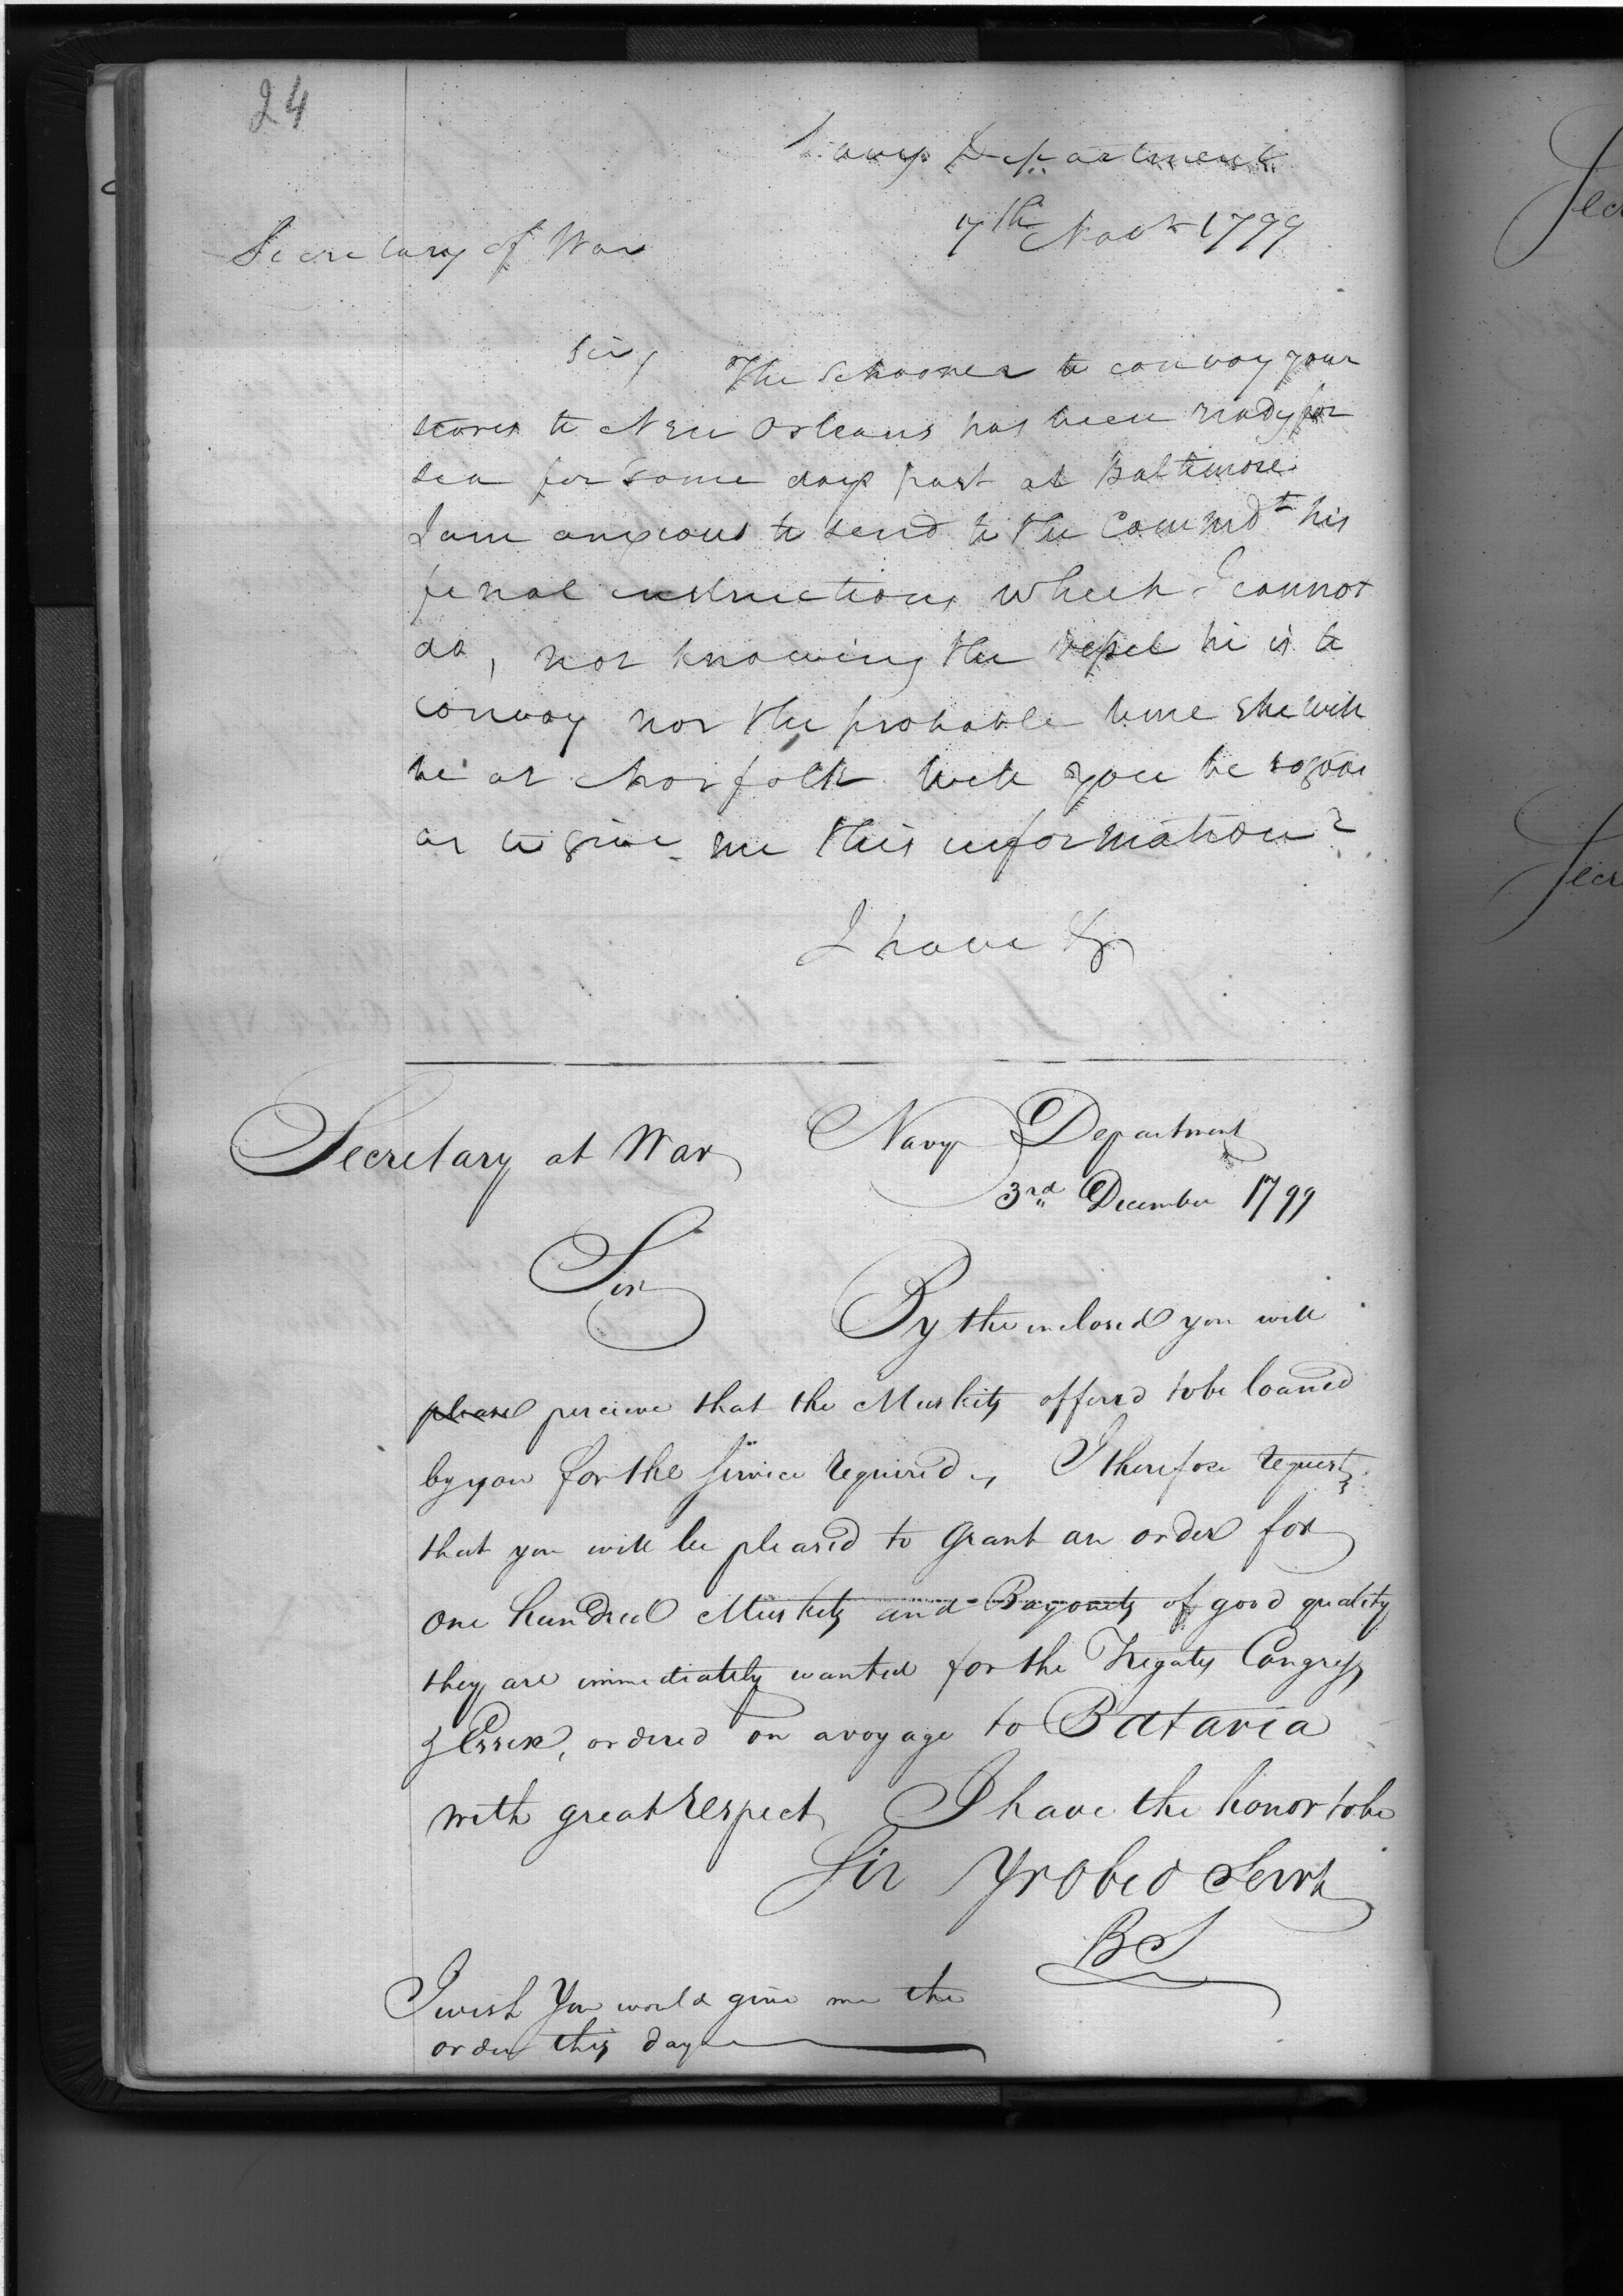 24
Navy Department
7th Novr 1799
Secretary of War
Sir, The Schooner to convoy your
stores to New Orleans has been ready for
sea for some days past at Baltimore.
I am anxious to send to the Commdt his
final instructions which I cannot
do, not knowing the vessel he is to
convoy nor the probable time she will
be at Norfolk will you be so good
as to give me this information?
I have &c
Secretary at War Navy Department
3rd December 1799
Sir By the inclosed you will
please perceive that the Muskets offerd to be loaned
by you for the service required, I therefore request
that you will be pleased to grant an order for
One hundred Muskets and Bayonets of good quality
they are immediately wanted for the Frigates Congress
& Essex, ordered on a voyage to Batavia
with great respect, I have the honor to be
Sir Yr Obed Servt
BS
I wish You would give me the
order this day
Sec
Secr